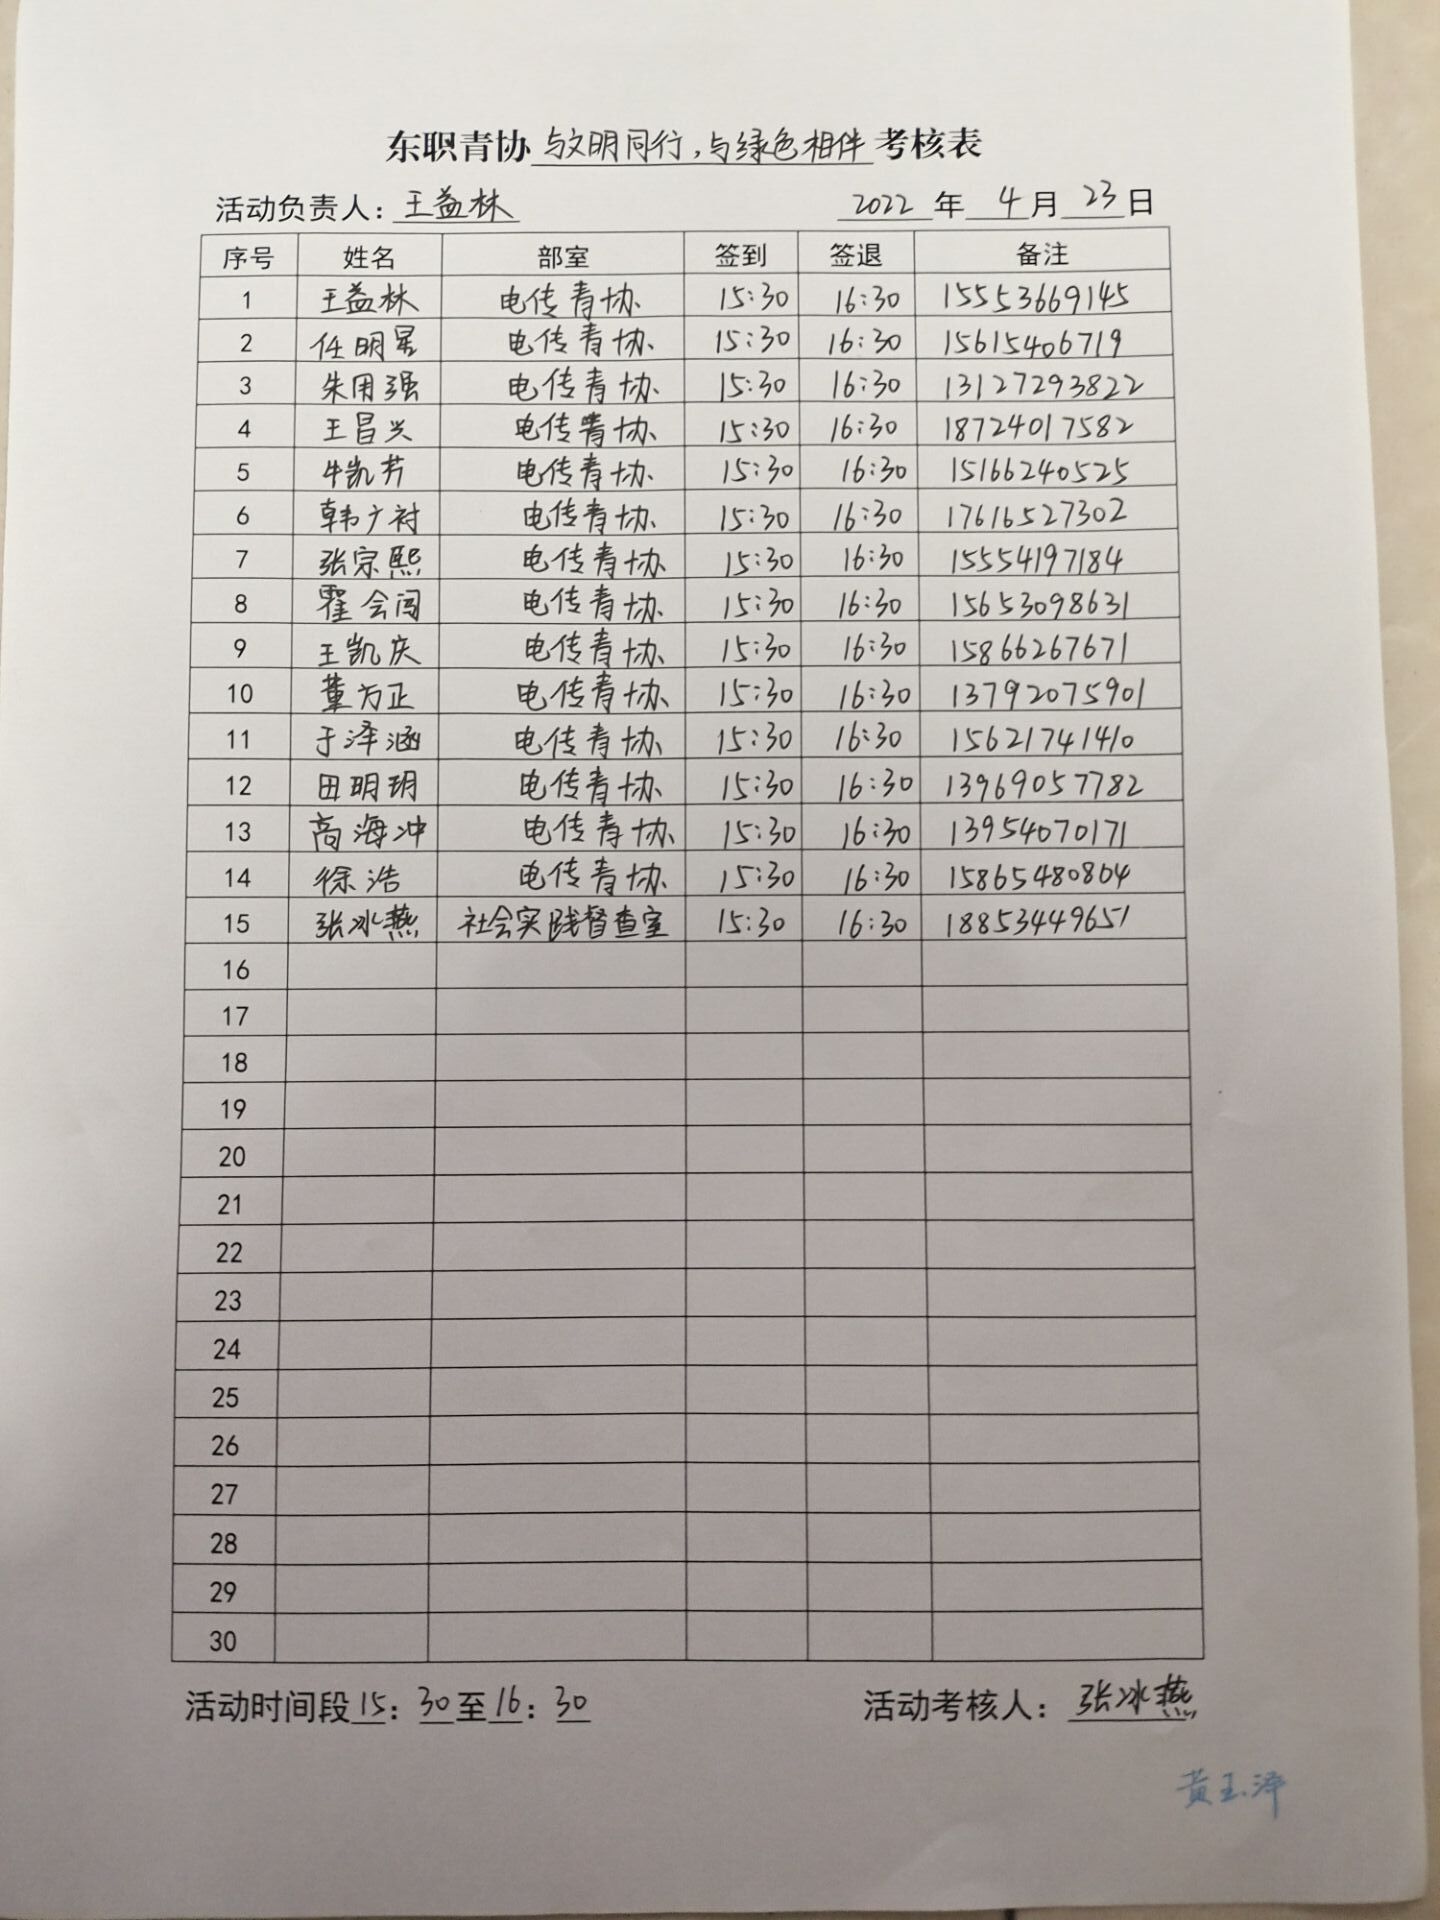 东职青协 与文明同行,与绿色相伴 考核表
活动负责人: 王益林 2022 年 4 月 23 日
序号 姓名 部室 签到 签退 备注
1 王益林 电传青协 15:30 16:30 15553669145
2 任明星 电传青协 15:30 16:30 15615406719
3 朱用强 电传青协 15:30 16:30 13127293822
4 王昌兴 电传青协 15:30 16:30 18724017582
5 牛凯芳 电传青协 15:30 16:30 15166240525
6 韩广衬 电传青协 15:30 16:30 17616527302
7 张宗熙 电传青协 15:30 16:30 15554197184
8 霍会闯 电传青协 15:30 16:30 15653098631
9 王凯庆 电传青协 15:30 16:30 15866267671
10 董方正 电传青协 15:30 16:30 13792075901
11 于泽涵 电传青协 15:30 16:30 15621741410
12 田明玥 电传青协 15:30 16:30 13969057782
13 高海冲 电传青协 15:30 16:30 13954070171
14 徐浩 电传青协 15:30 16:30 15865480804
15 张冰燕 社会实践督查室 15:30 16:30 18853449651
16
17
18
19
20
21
22
23
24
25
26
27
28
29
30
活动时间段 15: 30 至 16: 30 活动考核人: 张冰燕
黄玉泽